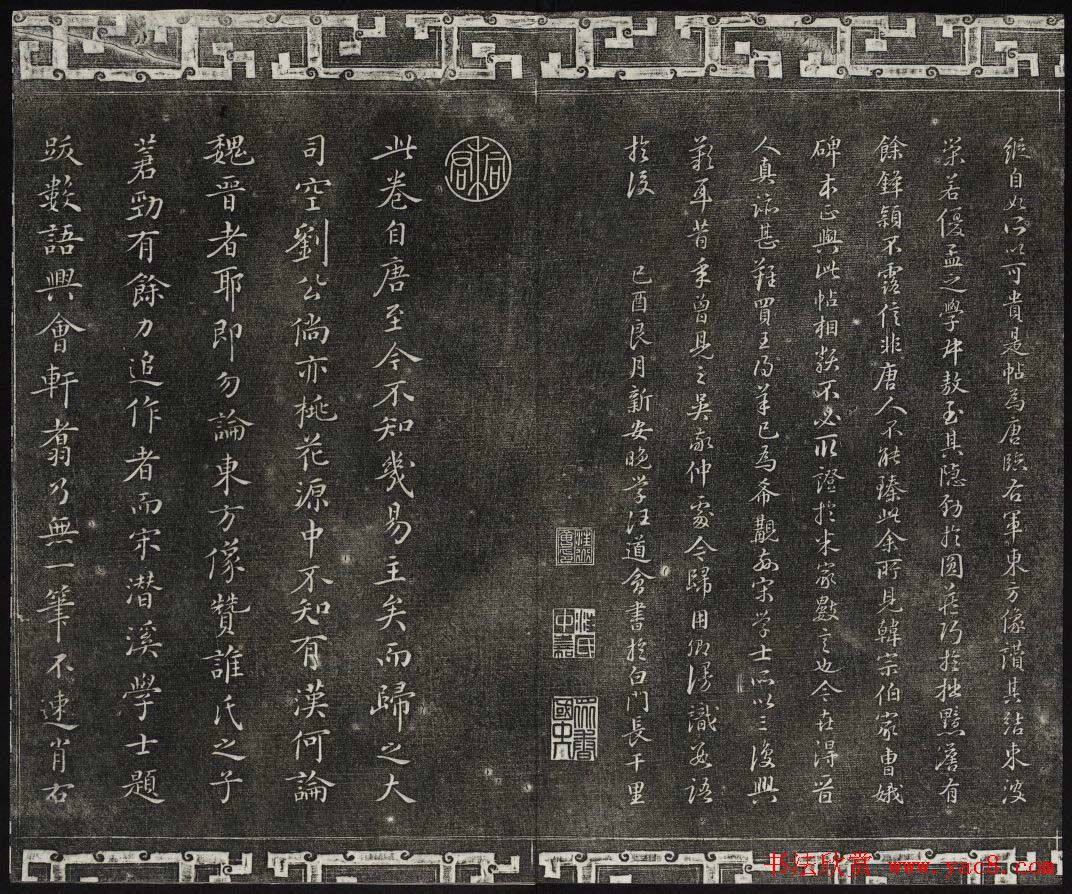 縱自如所以可貴是帖為唐臨右軍東方像讚其結束波
榮若優孟之學叔敖至其隱勁於圓藏巧於拙黯澹有
餘鋒穎不露信非唐人不能臻此余所見韓宗伯家曹娥
碑本正與此帖相類不必取證於米家數言也今在淂晉
人真跡甚難買王得羊已為希觀如宋學士所以三復興
歎耳昔年曾見之吳家仲處今歸用卿漫識數語
於後
己酉良月新安晚學汪道會書於白門長干里
汪氏
中嘉
此卷自唐至今不知幾易主矣而歸之大
司空劉公倘亦桃花源中不知有漢何論
魏晉者耶即勿論東方像贊誰氏之子
蒼勁有餘力追作者而宋潛溪學士題
跋數語興會軒翥乃無一筆不速肖右
书法欣赏 www.yac8.com